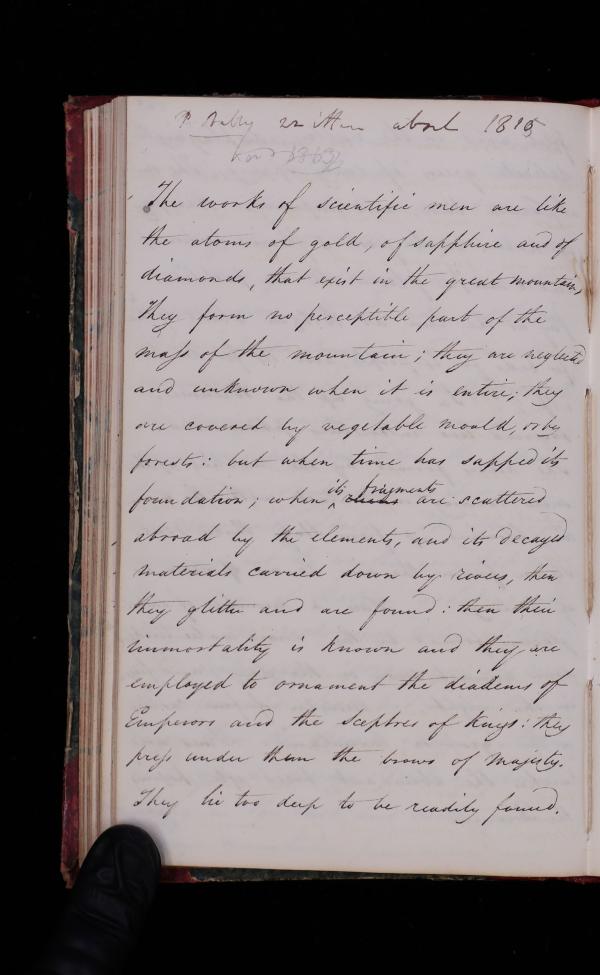 P. written about 1815
The works of scientific men are like
the atoms of gold, of sapphire and of
diamonds, that exist in the great mountains,
They form no perceptible part of the
mass of the mountain; they are neglected
and unknown when it is entire; they
are covered by vegetable mould, or by
forests: but when time has sapped its
foundation; when its fragments are scattered
abroad by the elements, and its decayed
materials carried down by rivers, then
they glitter and are found: then their
immortality is known and they are
employed to ornament the diadems of
Emperors and the sceptres of Kings: they
press under them the brows of Majesty.
They lie too deep to be readily found.